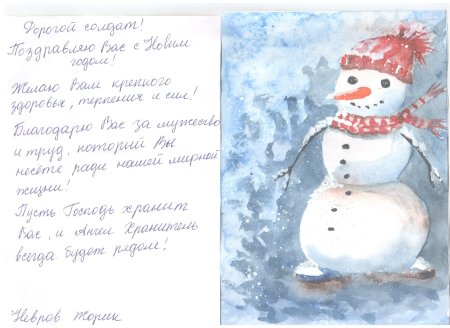 Дорогой солдат!
Поздравляю Вас с Новим
годом!
Желаю Вам крепкого
здоровья, терпения и сил!
Благодарю Вас за мужество
и труд, который Вы
несёте ради нашей мирной
жизни!
Пусть Господь хранит
Вас, и Ангел Хранитель
всегда будет рядом!